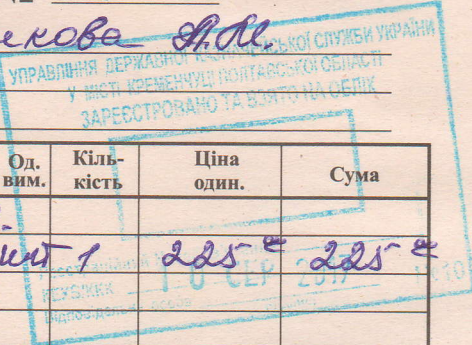 кова А.М.
УПРАВЛІННЯ ДЕРЖАВНОЇ КАЗНАЧЕЙСЬКОЇ СЛУЖБИ УКРАЇНИ
У МІСТІ КРЕМЕНЧУЦІ ПОЛТАВСЬКОЇ ОБЛАСТІ
ЗАРЕЄСТРОВАНО ТА ВЗЯТО НА ОБЛІК
Од. вим. Кіль-кість Ціна один. Сума
шт 1 225 225
10 СЕР 2017